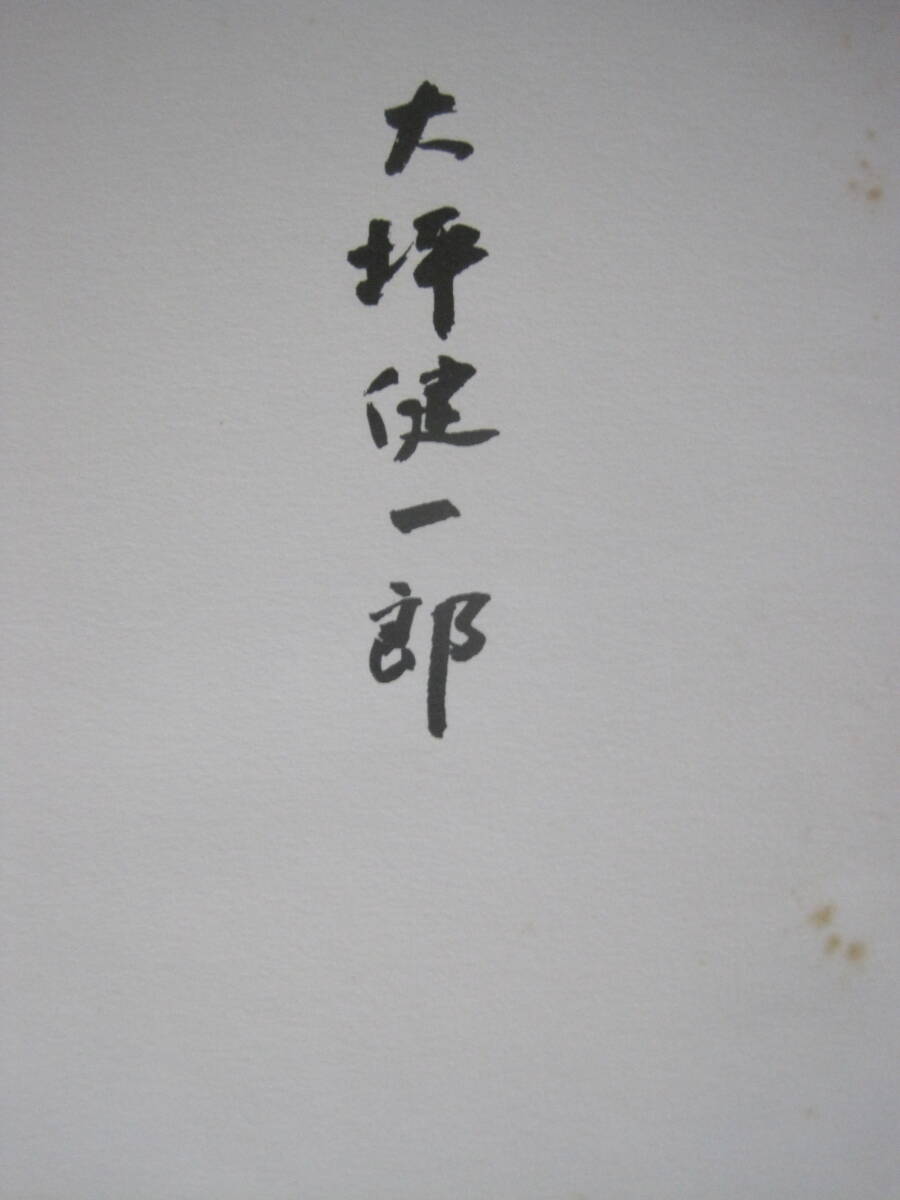 大坪健一郎